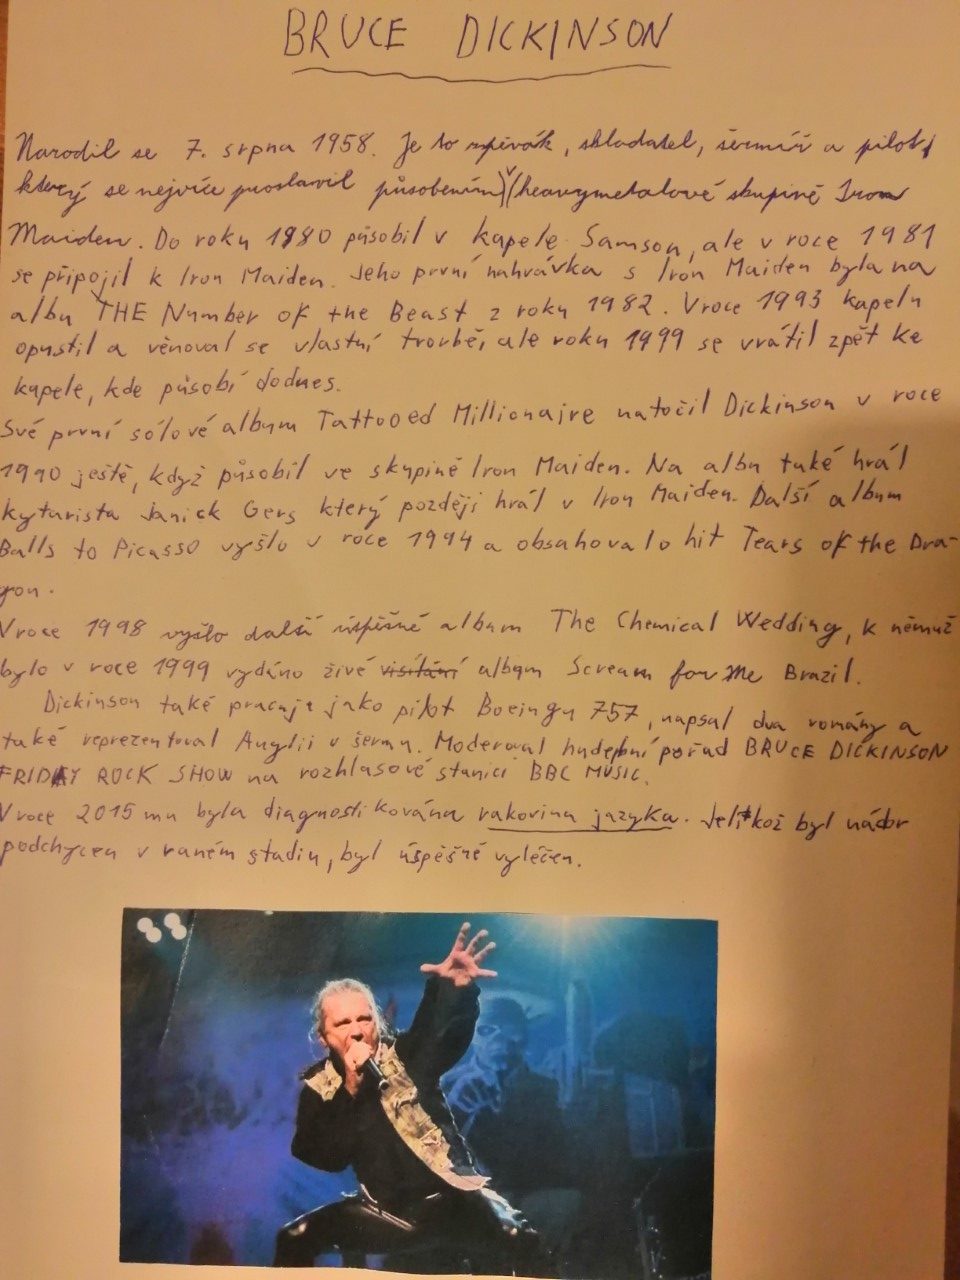 BRUCE DICKINSON
Narodil se 7. srpna 1958. Je to zpěvák, skladatel, šermíř a pilot,
který se nejvíce proslavil působením v heavymetalové skupině Iron
Maiden. Do roku 1980 působil v kapele Samson, ale v roce 1981
se připojil k Iron Maiden. Jeho první nahrávka s Iron Maiden byla na
albu THE Number of the Beast z roku 1982. V roce 1993 kapelu
opustil a věnoval se vlastní tvorbě, ale roku 1999 se vrátil zpět ke
kapele, kde působí dodnes.
Své první sólové album Tattooed Millionaire natočil Dickinson v roce
1990 ještě, když působil ve skupině Iron Maiden. Na albu také hrál
kytarista Janick Gers který později hrál v Iron Maiden. Další album
Balls to Picasso vyšlo v roce 1994 a obsahovalo hit Tears of the Dra-
gon.
V roce 1998 vyšlo další úspěšné album The Chemical Wedding, k němuž
bylo v roce 1999 vydáno živé album Scream for Me Brazil.
Dickinson také pracuje jako pilot Boeingu 757, napsal dva romány a
také reprezentoval Anglii v šermu. Moderoval hudební pořad BRUCE DICKINSON
FRIDAY ROCK SHOW na rozhlasové stanici BBC MUSIC.
V roce 2015 mu byla diagnostikována rakovina jazyka. Jelikož byl nádor
podchycen v raném stadiu, byl úspěšně vyléčen.